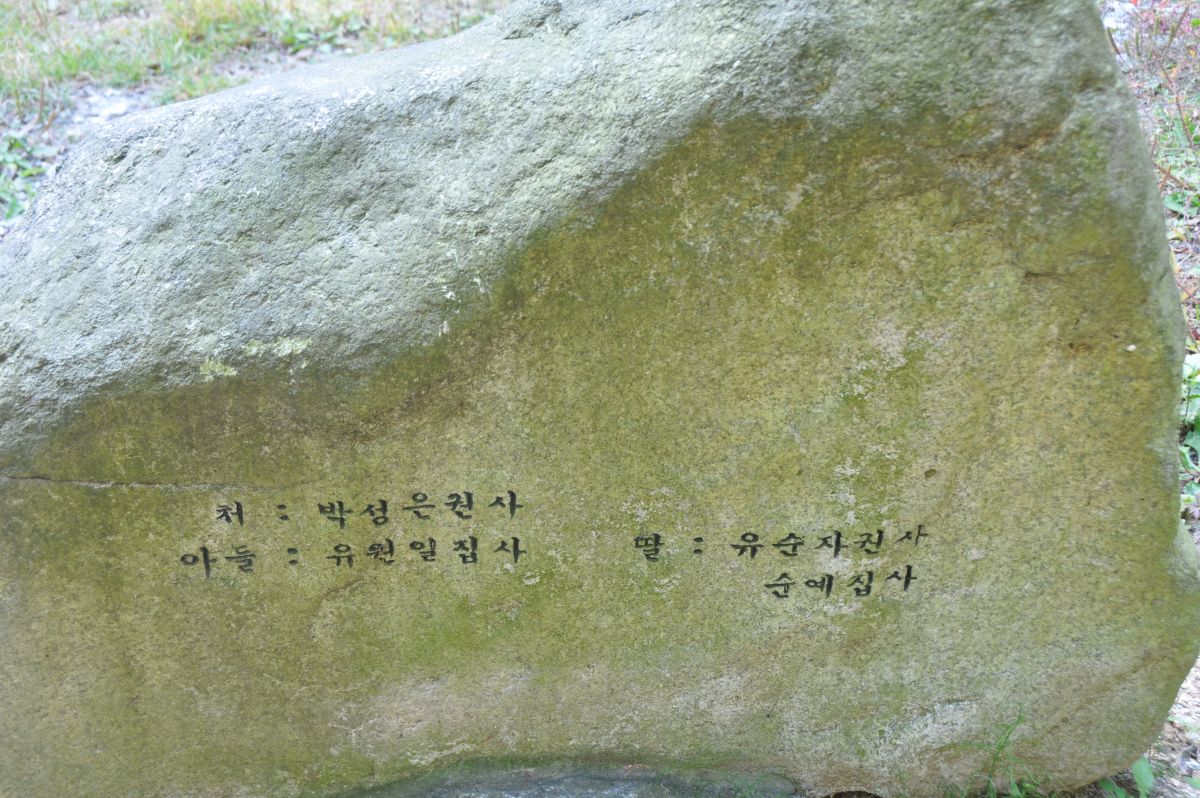 처 : 박성은권사
아들 : 유원일집사
딸 : 유순자권사
순예집사